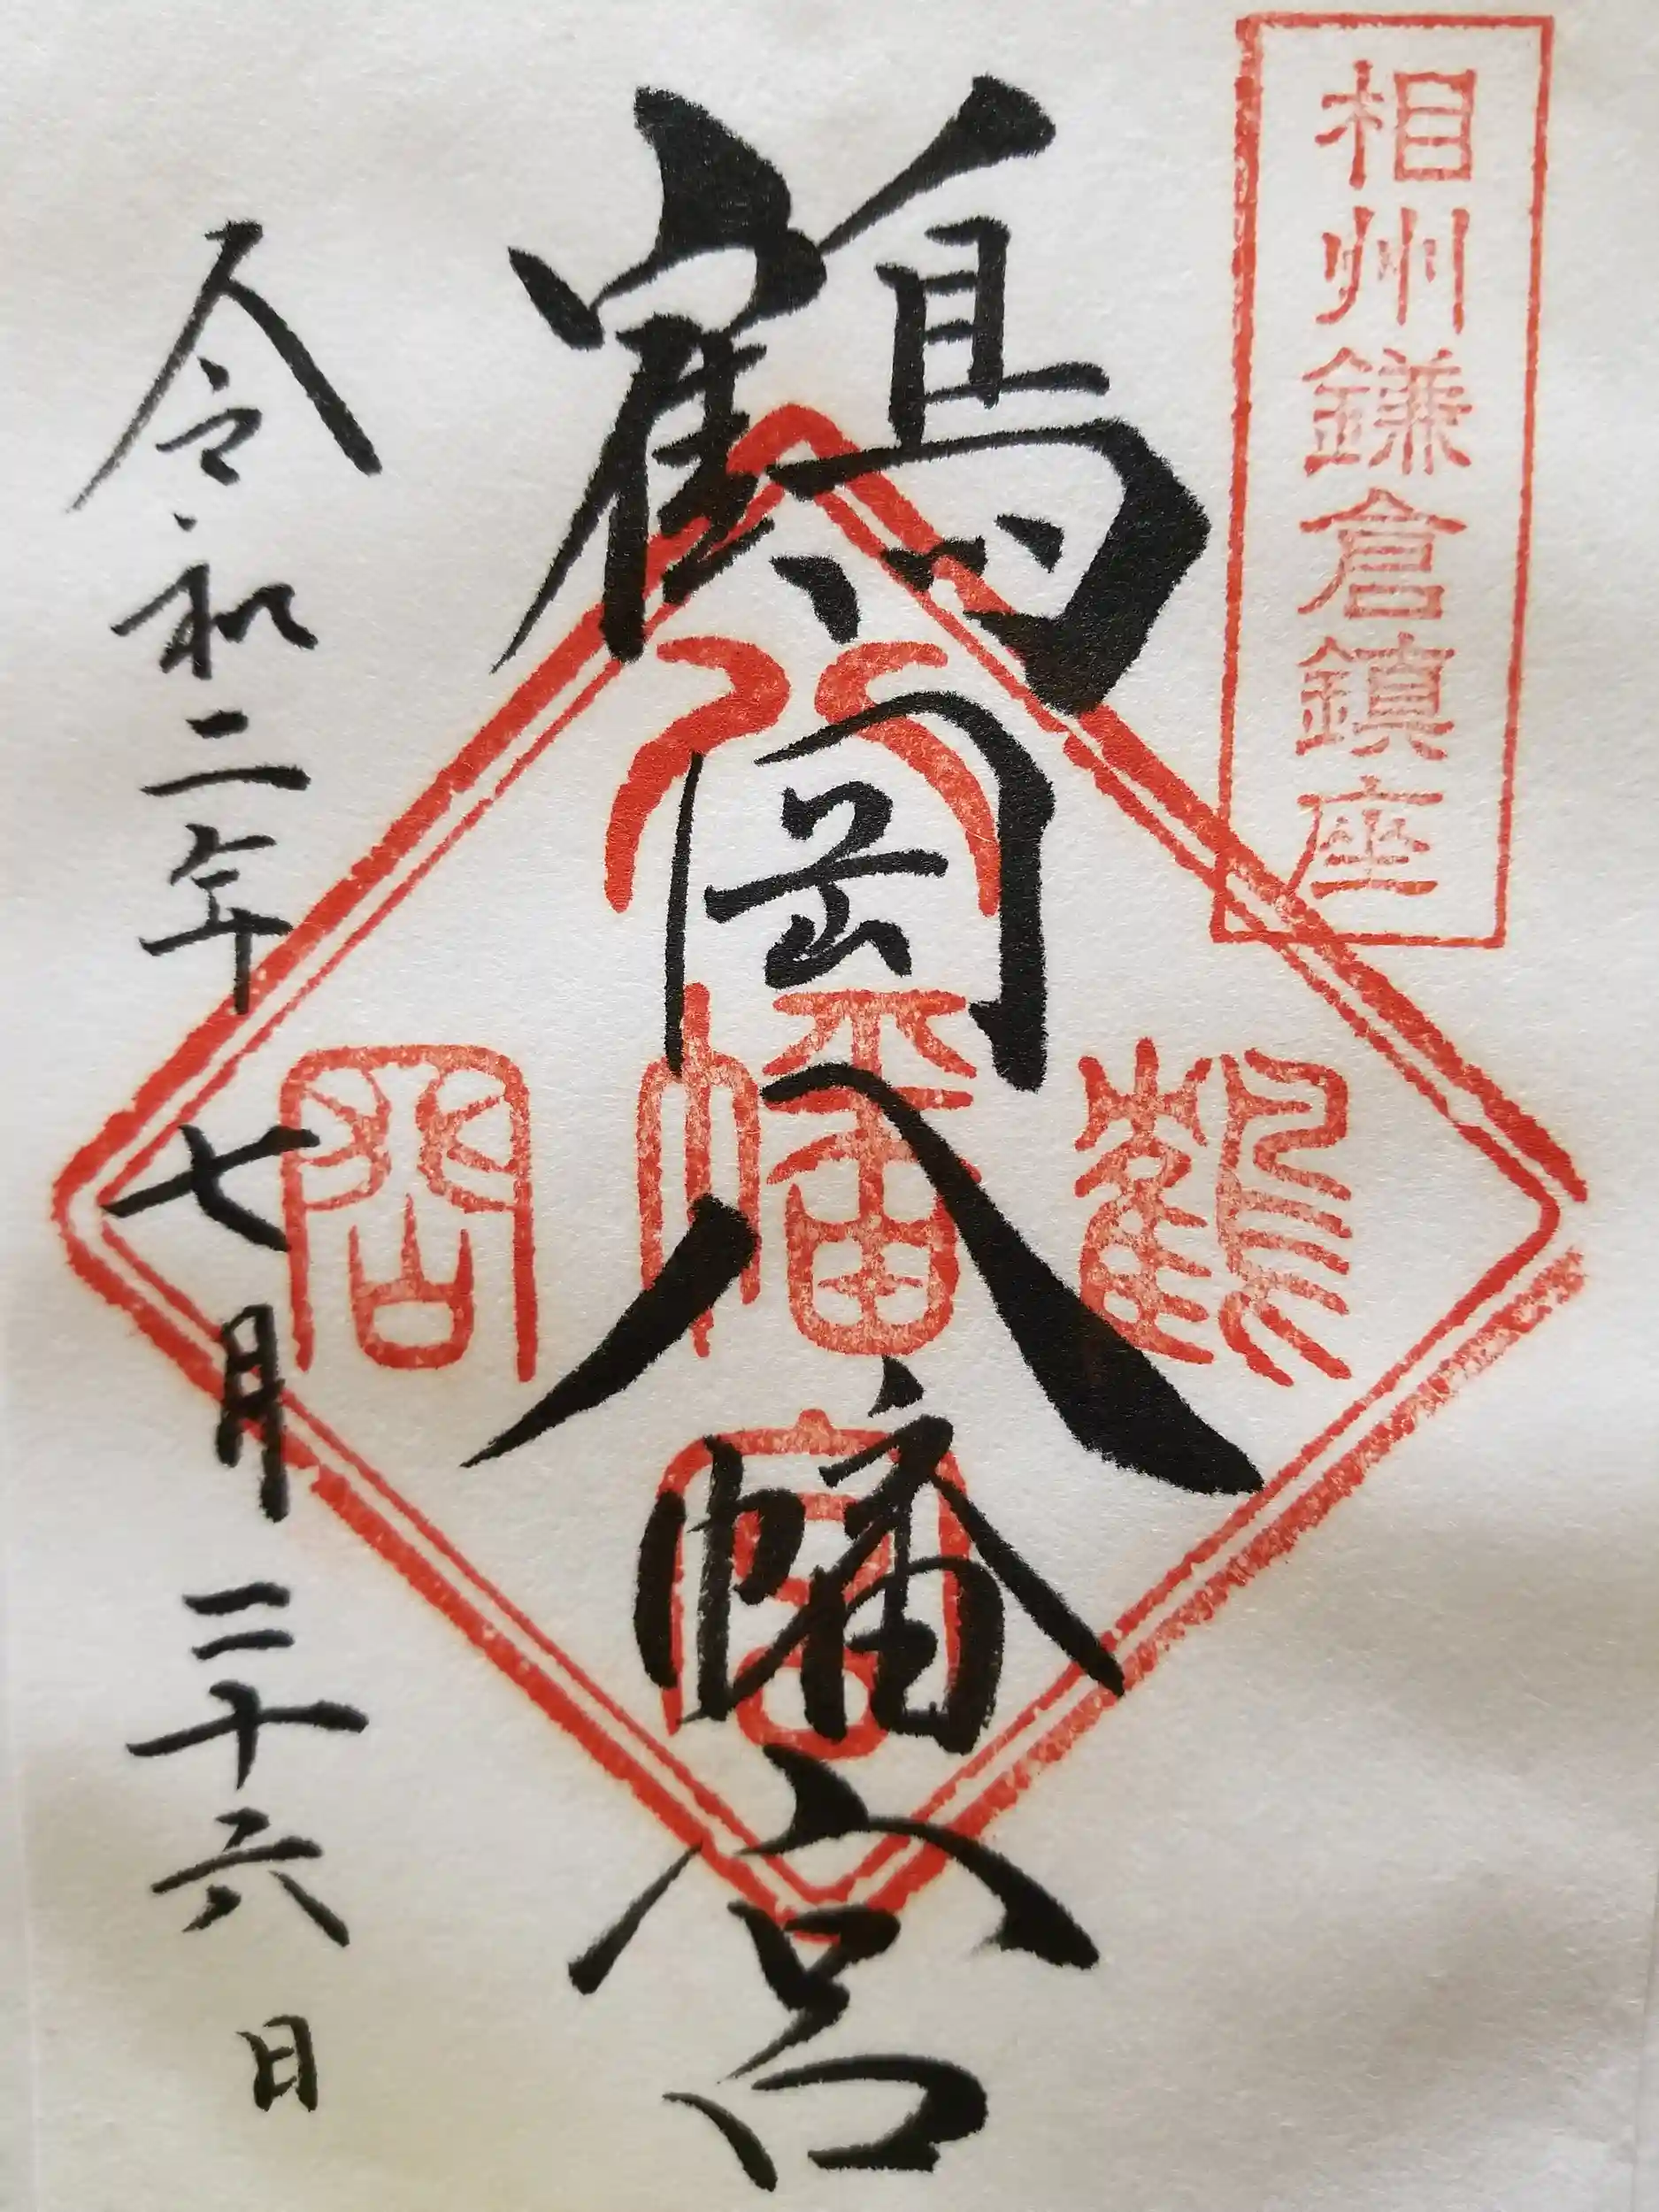 相州鎌倉鎮座
鶴岡八幡宮
八
鶴幡岡
宮
令和二年七月二十六日